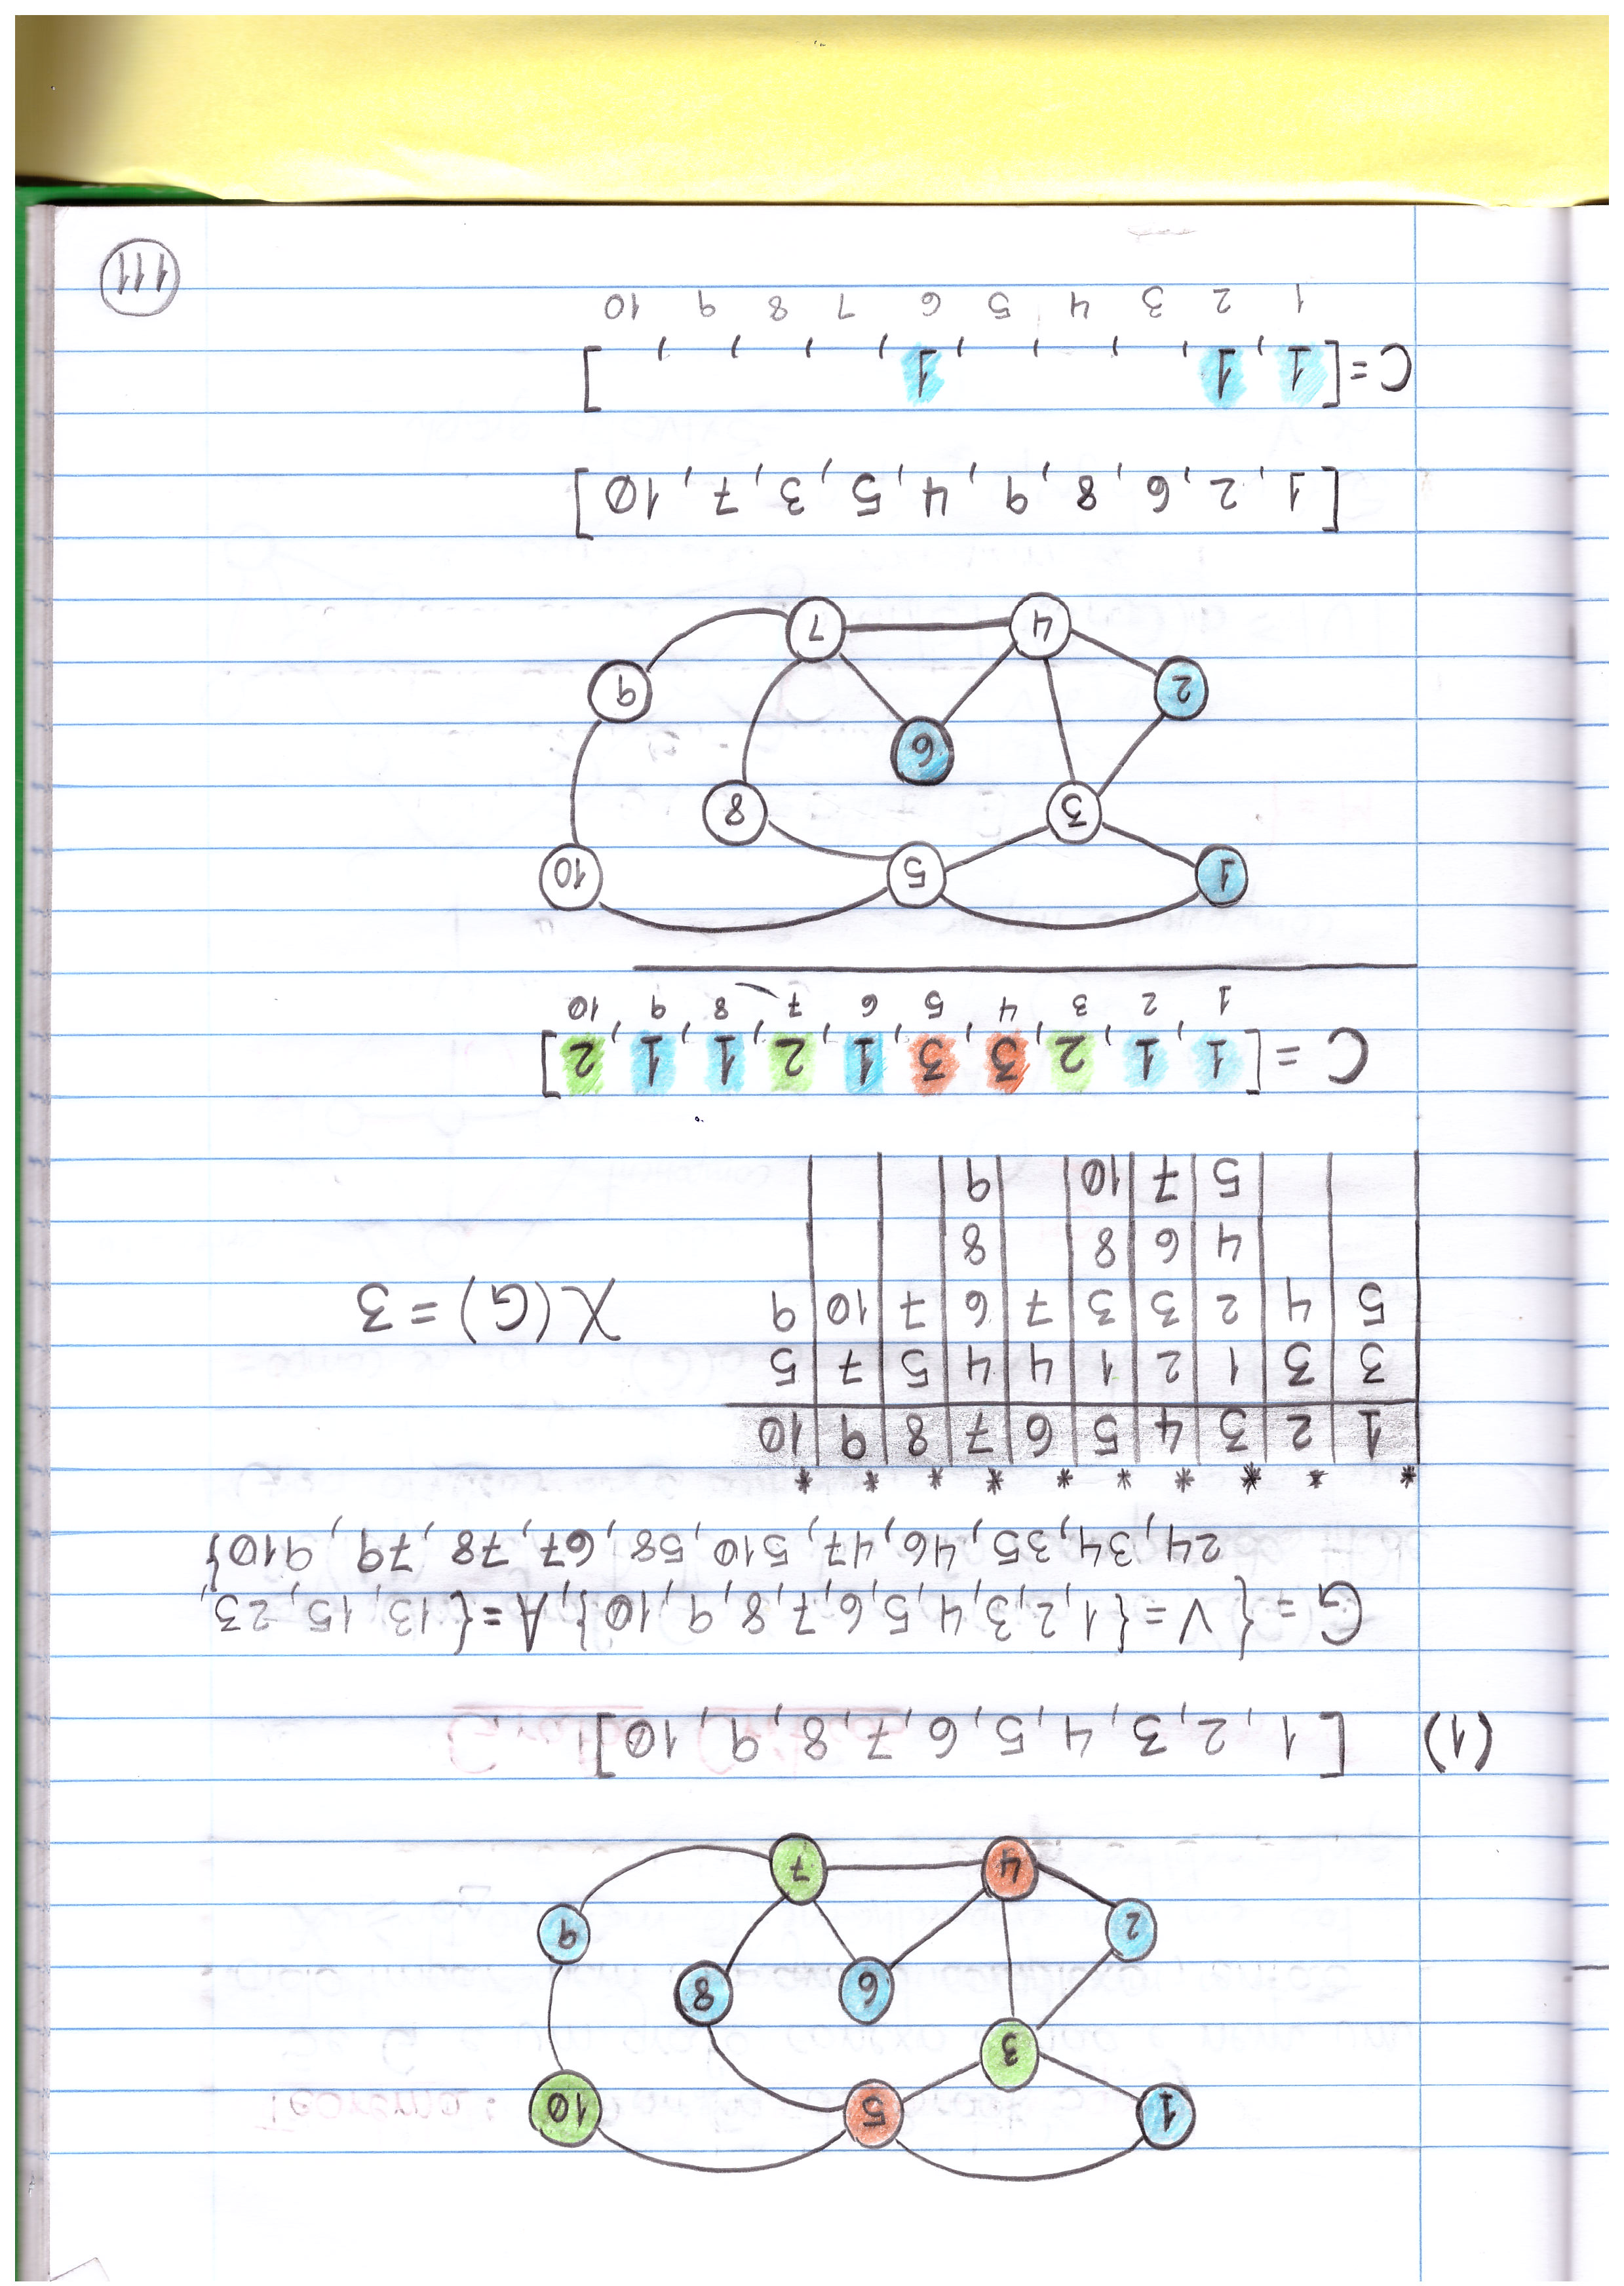 1 5 10
3
6 8
2 9
4 7
(1) [1, 2, 3, 4, 5, 6, 7, 8, 9, 10]
G = { V = {1, 2, 3, 4, 5, 6, 7, 8, 9, 10}, A = { 13, 15, 23,
24, 34, 35, 46, 47, 510, 58, 67, 78, 79, 910}
* * * * * * * * * *
1 2 3 4 5 6 7 8 9 10
3 3 1 2 1 4 4 5 7 5
5 4 2 3 3 7 6 7 10 9
4 6 8 8
5 7 10 9
χ(G) = 3
C = [1, 1, 2, 3, 3, 1, 2, 1, 1, 2]
1 2 3 4 5 6 7 8 9 10
1 5 10
3 8
6
2 9
4 7
[1, 2, 6, 8, 9, 4, 5, 3, 7, 10]
C = [1, 1, , , , 1, , , , ]
1 2 3 4 5 6 7 8 9 10
111